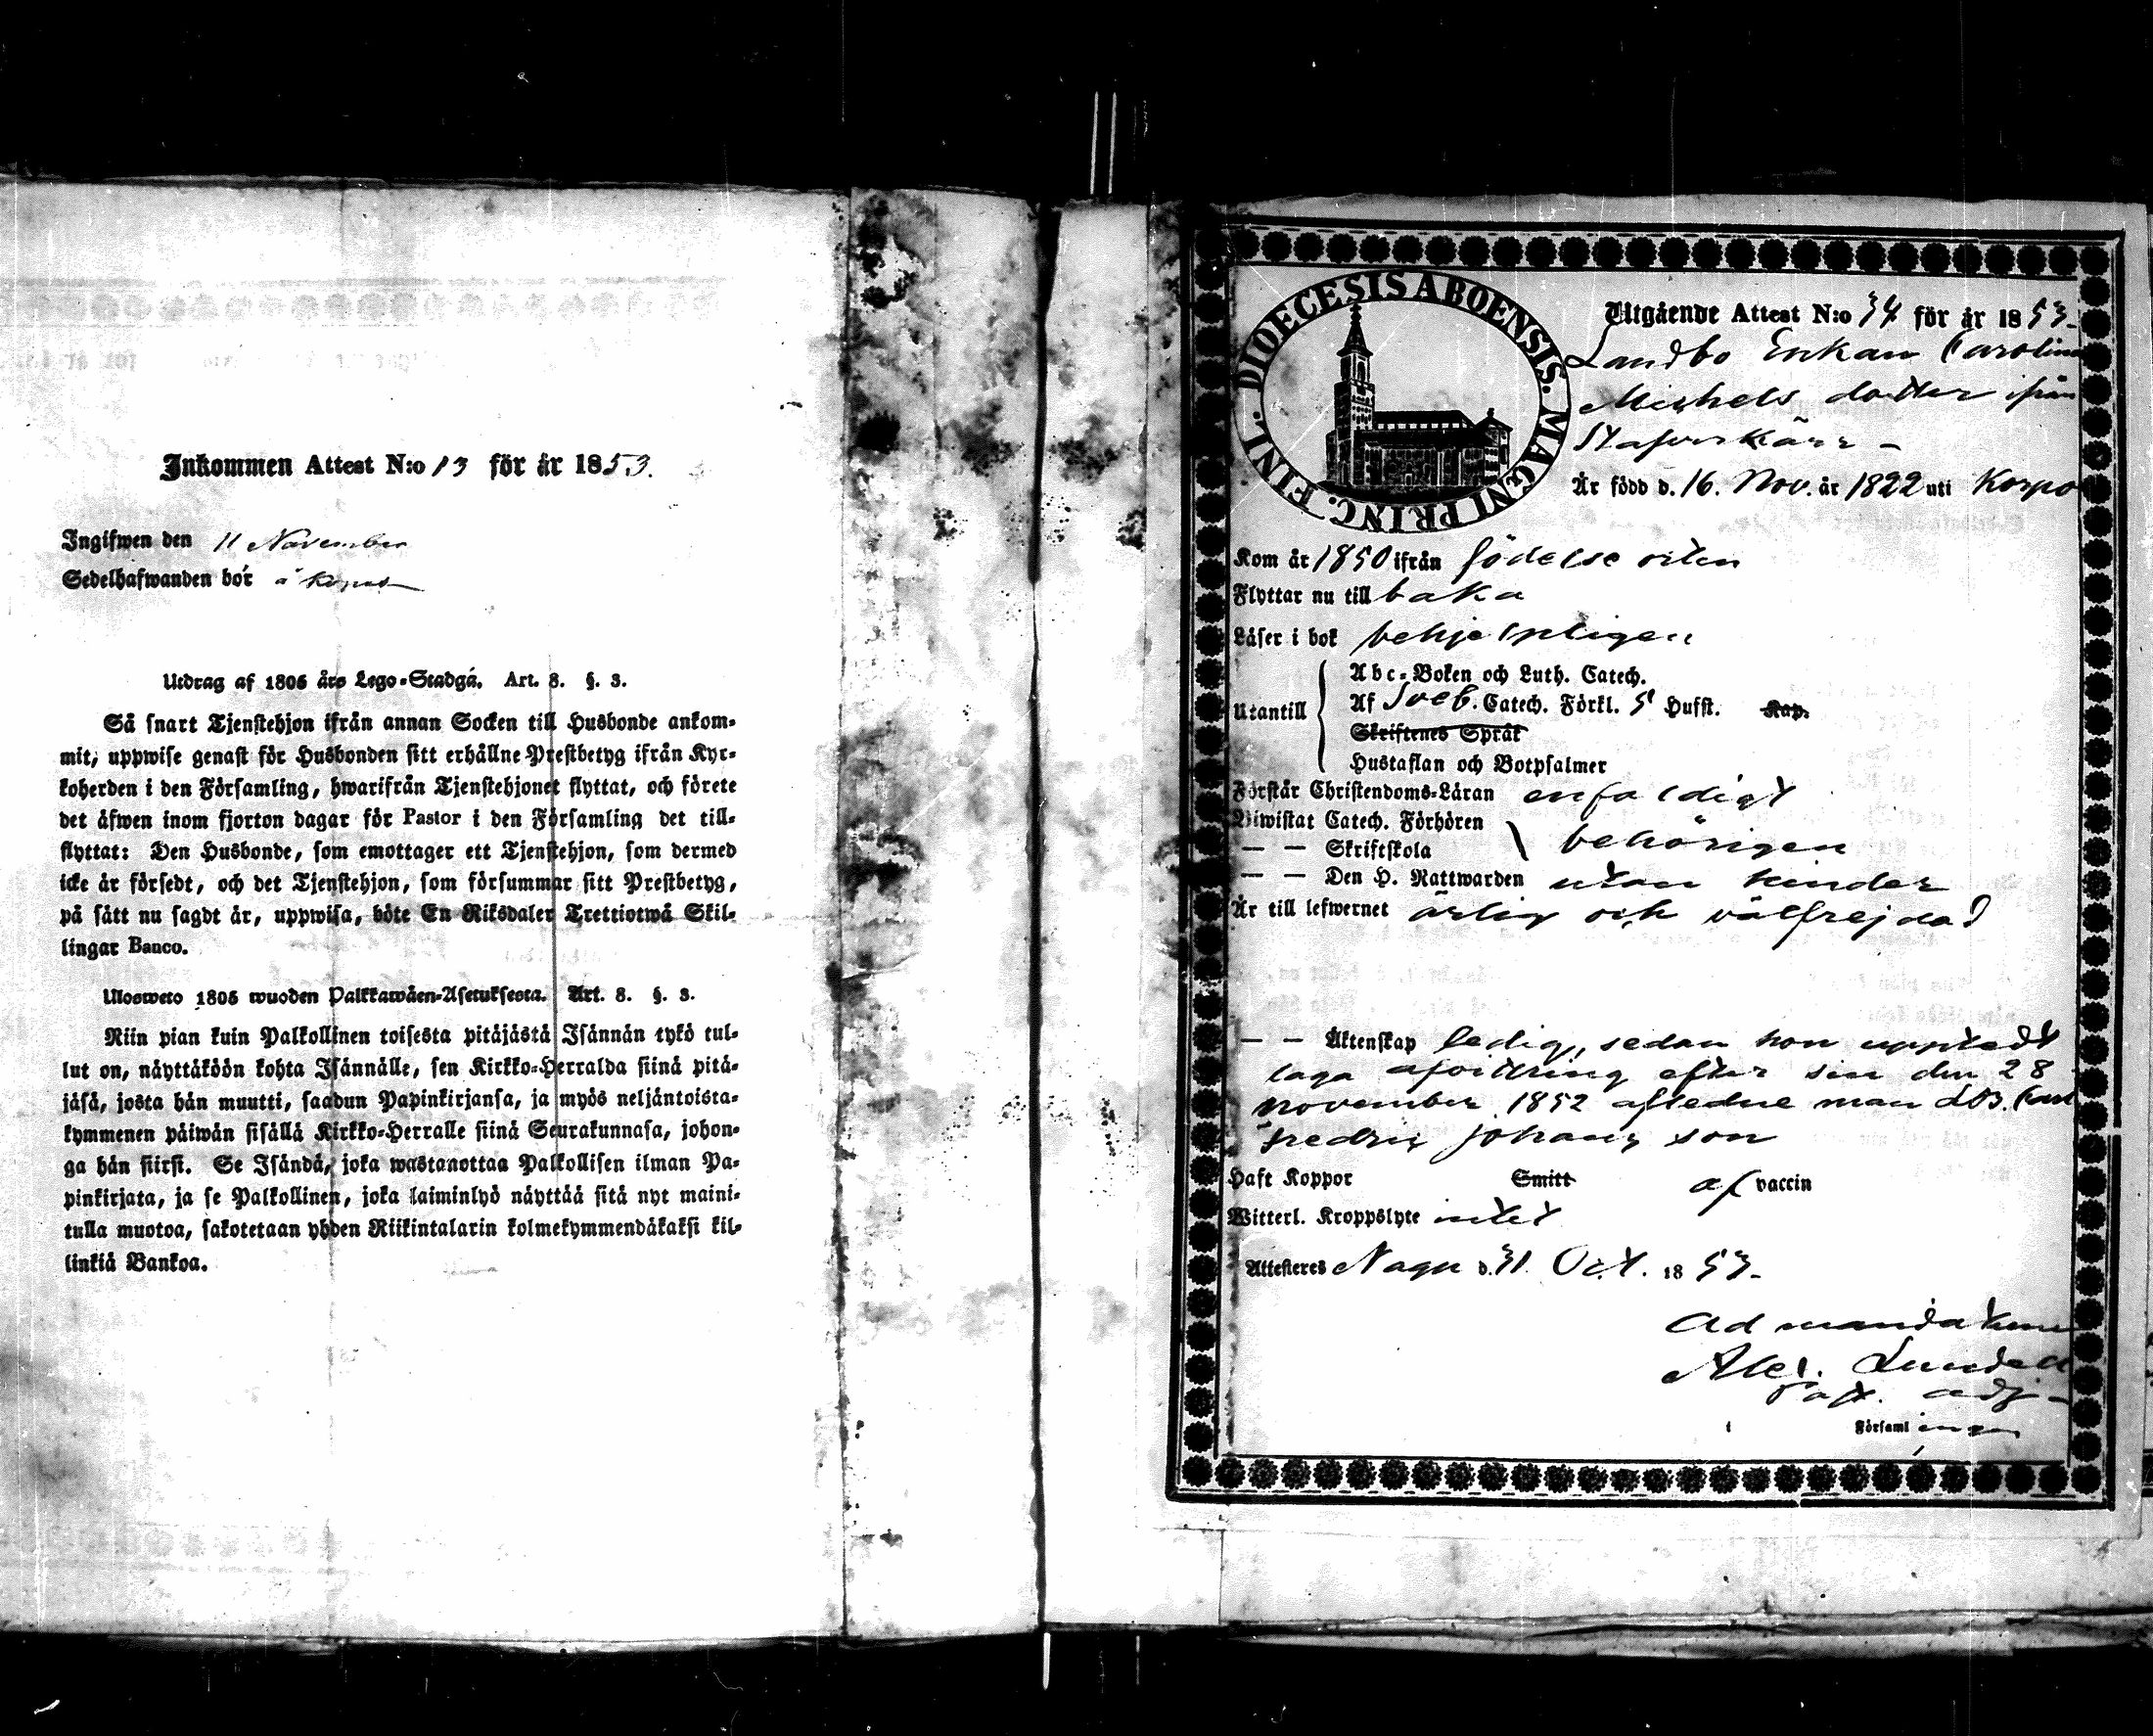 Inkommen Attest N:o 13 för år 1853.
Ingifwen den 11 November
Sedelhafwanden bor å
Utdrag af 1805 års Lego-Stadga. Art. 8. §. 3.
Så snart Tjenstehjon ifrån annan Socken till Husbonde ankom-
mit, uppwise genast för Husbonden sitt erhållne Prestbetyg ifrån Kyr-
koherden i den Församling, hwarifrån Tjenstehjonet flyttat, och förete
det äfwen inom fjorton dagar för Pastor i den Församling det till-
flyttat: Den Husbonde, som emottager ett Tjenstehjon, som dermed
icke är försedt, och det Tjenstehjon, som försummar sitt Prestbetyg,
på sätt nu sagdt är, uppwisa, böte En Riksdaler Trettiotwå Skil-
lingar Banco.
Ulosweto 1805 wuoden Palkkawäen-Asetuksesta. Art. 8. §. 3.
Niin pian kuin Palkollinen toisesta pitäjästä Isännän tykö tul-
lut on, näyttäköön kohta Isännälle, sen Kirkko-Herralda siinä pitä-
jäsä, josta hän muutti, saadun Papinkirjansa, ja myös neljäntoista-
kymmenen päiwän sisällä Kirkko-Herralle siinä Seurakunnasa, johon-
ga hän siirsi. Se Isändä, joka wastanottaa Palkollisen ilman Pa-
pinkirjata, ja se Palkollinen, joka laiminlyö näyttää sitä nyt maini-
tulla muotoa, sakotetaan yhden Riikintalarin kolmekymmendäkaksi kil-
linkiä Bankoa.
DIOECESIS ABOENSIS. MAGNI PRINC. FINL.
Utgående Attest N:o 34 för år 1853.
Landbo Enkan Carolina
Michels dotter ifrån
Är född d. 16. Nov. år 1822 uti Korpo
Kom år 1850 ifrån födelse orten
Flyttar nu till baka
Läser i bok behjelpligen
Utantill
Abc-Boken och Luth. Catech.
Af Sveb. Catech. Förkl. 5 Hufst. Kap.
Skriftenes Språk
Hustaflan och Botpsalmer
Förstår Christendoms-Läran enfaldigt
Biwistat Catech. Förhören
— — Skriftskola behörigen
— — Den H. Nattwarden utan hinder
Är till lefwernet ärlig och välfrejdad
— — Äktenskap ledig, sedan hon upptedt
laga afvittring efter sin den 28
november 1852 aflednе man LB. Carl
Fredric Johans son
Haft Koppor Smitt af vaccin
Witterl. Kroppslyte intet
Attesteres Nagu d. 31. Oct. 1853.
Ad mandatum
Alex. Lundell
Past. adj.
i Församlingen